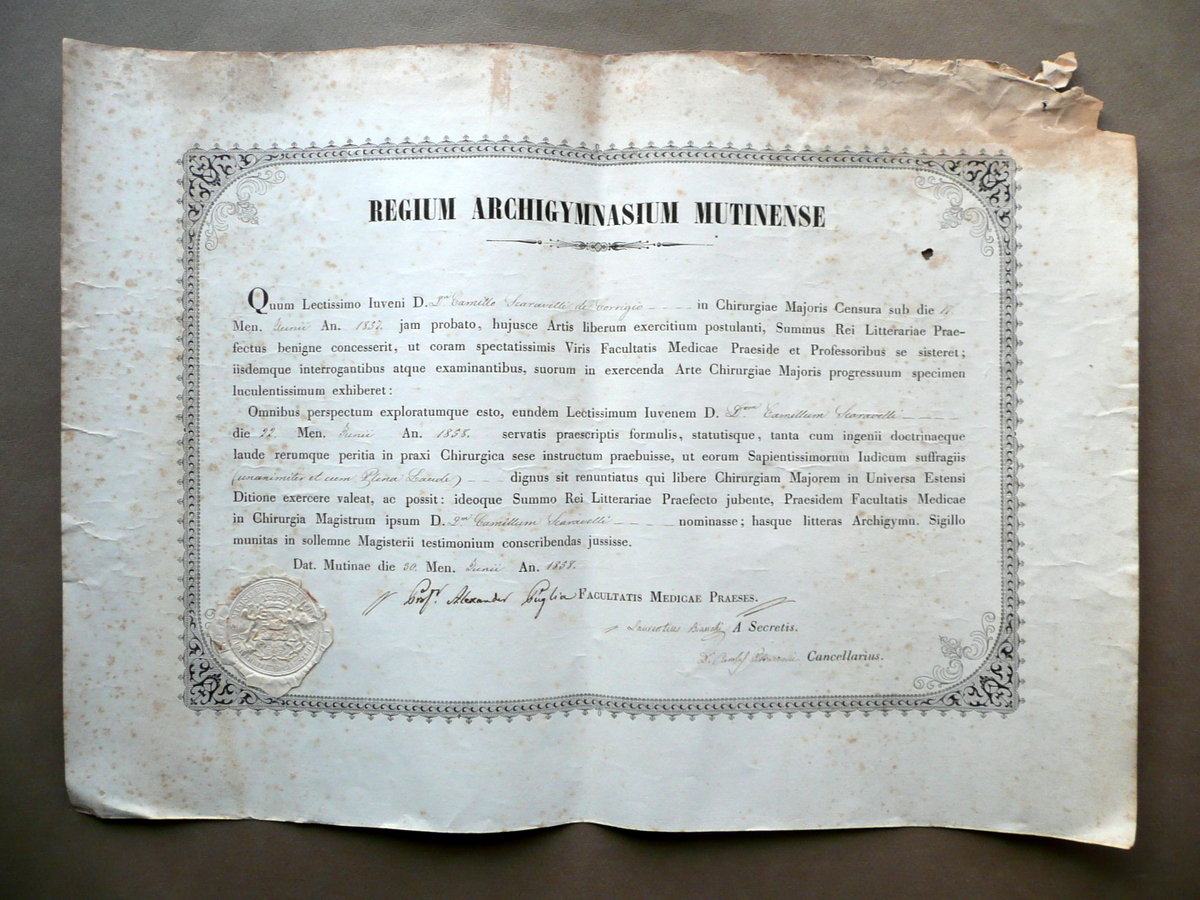 REGIUM ARCHIGYMNASIUM MUTINENSE
Quum Lectissimo Iuveni D. Dno Camillo Scaravelli de Corrigio in Chirurgiae Majoris Censura sub die
Men. Junii An. 1857. jam probato, hujusce Artis liberum exercitium postulanti, Summus Rei Litterariae Prae-
fectus benigne concesserit, ut coram spectatissimis Viris Facultatis Medicae Praeside et Professoribus se sisteret;
iisdemque interrogantibus atque examinantibus, suorum in exercenda Arte Chirurgiae Majoris progressuum specimen
luculentissimum exhiberet:
Omnibus perspectum exploratumque esto, eundem Lectissimum Iuvenem D. Dnum Camillum Scaravelli
die 22. Men. Junii An. 1858. servatis praescriptis formulis, statutisque, tanta cum ingenii doctrinaeque
laude rerumque peritia in praxi Chirurgica sese instructum praebuisse, ut eorum Sapientissimorum Iudicum suffragiis
(unanimiter et cum Plena Laude) dignus sit renuntiatus qui libere Chirurgiam Majorem in Universa Estensi
Ditione exercere valeat, ac possit: ideoque Summo Rei Litterariae Praefecto jubente, Praesidem Facultatis Medicae
in Chirurgia Magistrum ipsum D. Dnum Camillum Scaravelli nominasse; hasque litteras Archigymn. Sigillo
munitas in sollemne Magisterii testimonium conscribendas jussisse.
Dat. Mutinae die 30. Men. Junii An. 1858.
Profr. Alexander Puglia FACULTATIS MEDICAE PRAESES.
A Secretis.
Cancellarius.